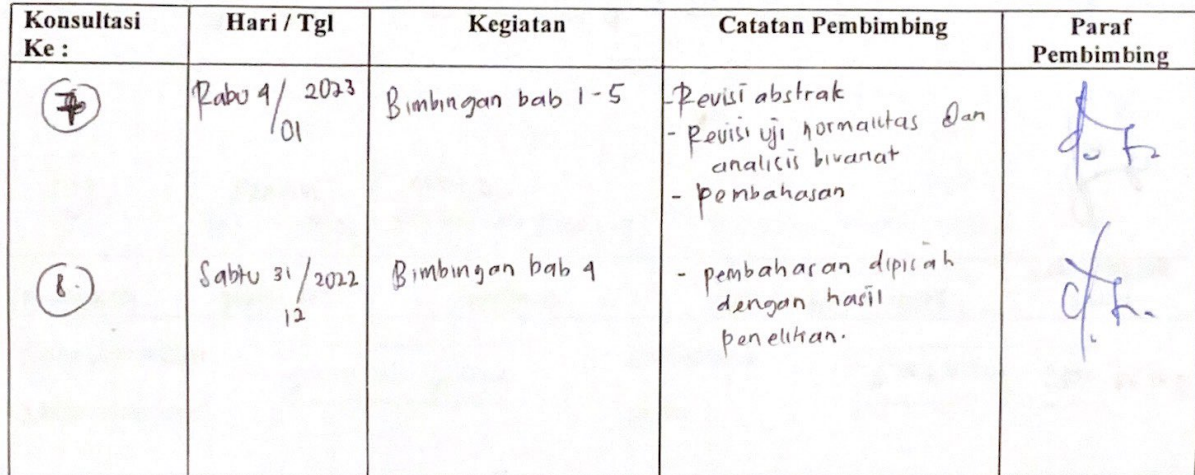 Konsultasi Ke :
Hari / Tgl
Kegiatan
Catatan Pembimbing
Paraf Pembimbing
7
Rabu 4/01 2023
Bimbingan bab 1-5
- Revisi abstrak
- Revisi uji normalitas dan
analisis bivariat
- pembahasan
8.
Sabtu 31/12 2022
Bimbingan bab 4
- pembahasan dipisah
dengan hasil
penelitian.